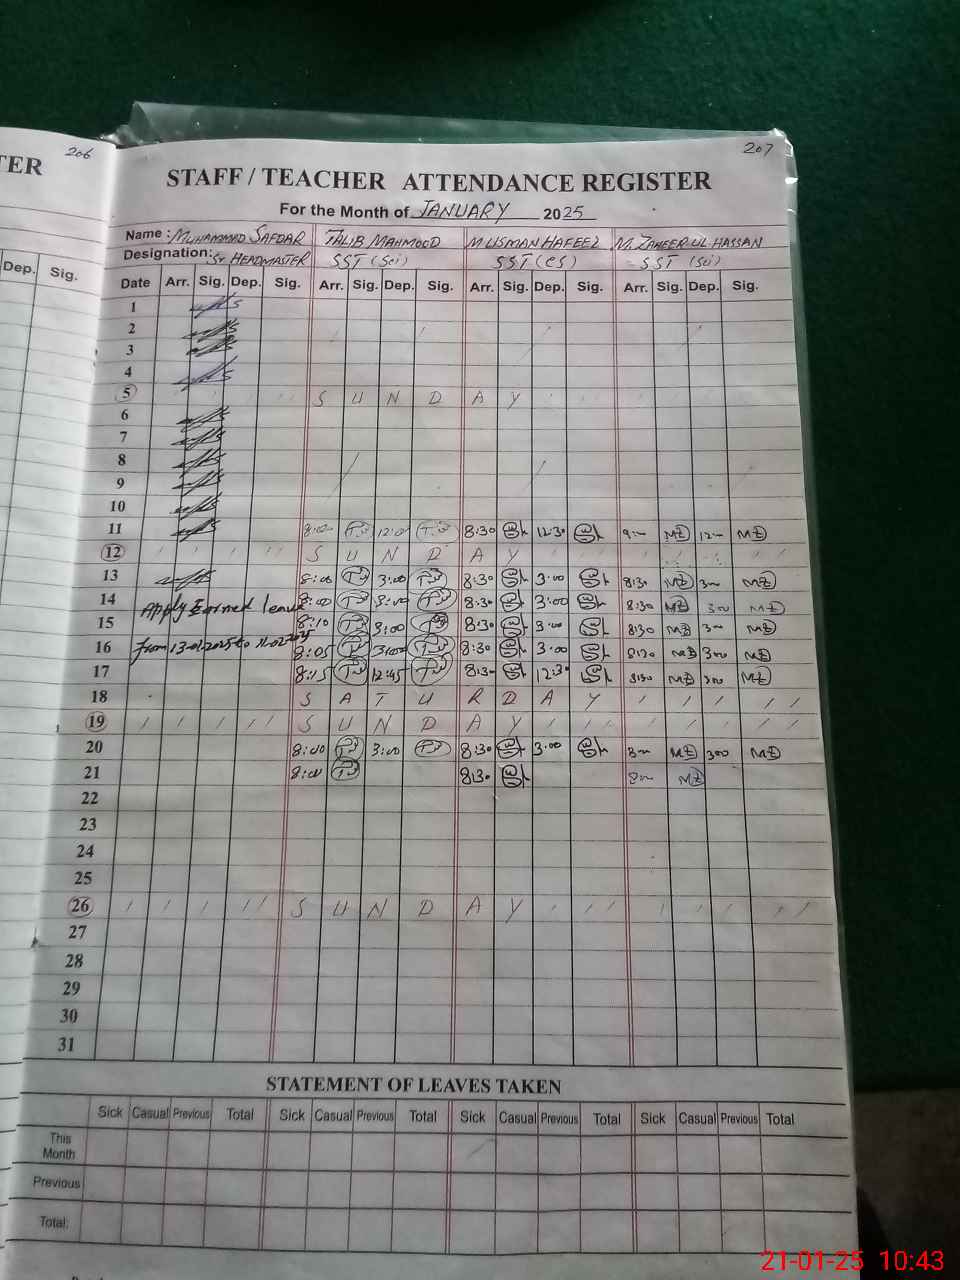 TER
206
207
STAFF / TEACHER ATTENDANCE REGISTER
For the Month of JANUARY 2025
Name : MUHAMMAD SAFDAR TALIB MAHMOOD M USMAN HAFEEZ M. ZAHEER UL HASSAN
Designation: Sr HEADMASTER SST (Sci) SST (CS) SST (Sci)
Dep. Sig.
Date Arr. Sig. Dep. Sig. Arr. Sig. Dep. Sig. Arr. Sig. Dep. Sig. Arr. Sig. Dep. Sig.
1
2
3
4
5 S U N D A Y
6
7
8
9
10
11 8:00 12:00 8:30 12:30 9:00 MZ 12:00 MZ
12 S U N D A Y
13 8:00 3:00 8:30 3:00 8:30 MZ 3:00 MZ
14 Apply Earned leave 8:00 3:00 8:30 3:00 8:30 MZ 3:00 MZ
15 8:10 3:00 8:30 3:00 8:30 MZ 3:00 MZ
16 from 13-01-2025 to 8:05 3:00 8:30 3:00 8:30 MZ 300 MZ
17 8:15 12:45 8:30 12:30 8:30 MZ MZ
18 S A T U R D A Y
19 S U N D A Y
20 8:00 3:00 8:30 3:00 8:00 MZ 300 MZ
21 8:00 8:30 8:00 MZ
22
23
24
25
26 S U N D A Y
27
28
29
30
31
STATEMENT OF LEAVES TAKEN
Sick Casual Previous Total Sick Casual Previous Total Sick Casual Previous Total Sick Casual Previous Total
This
Month
Previous
Total:
21-01-25 10:43